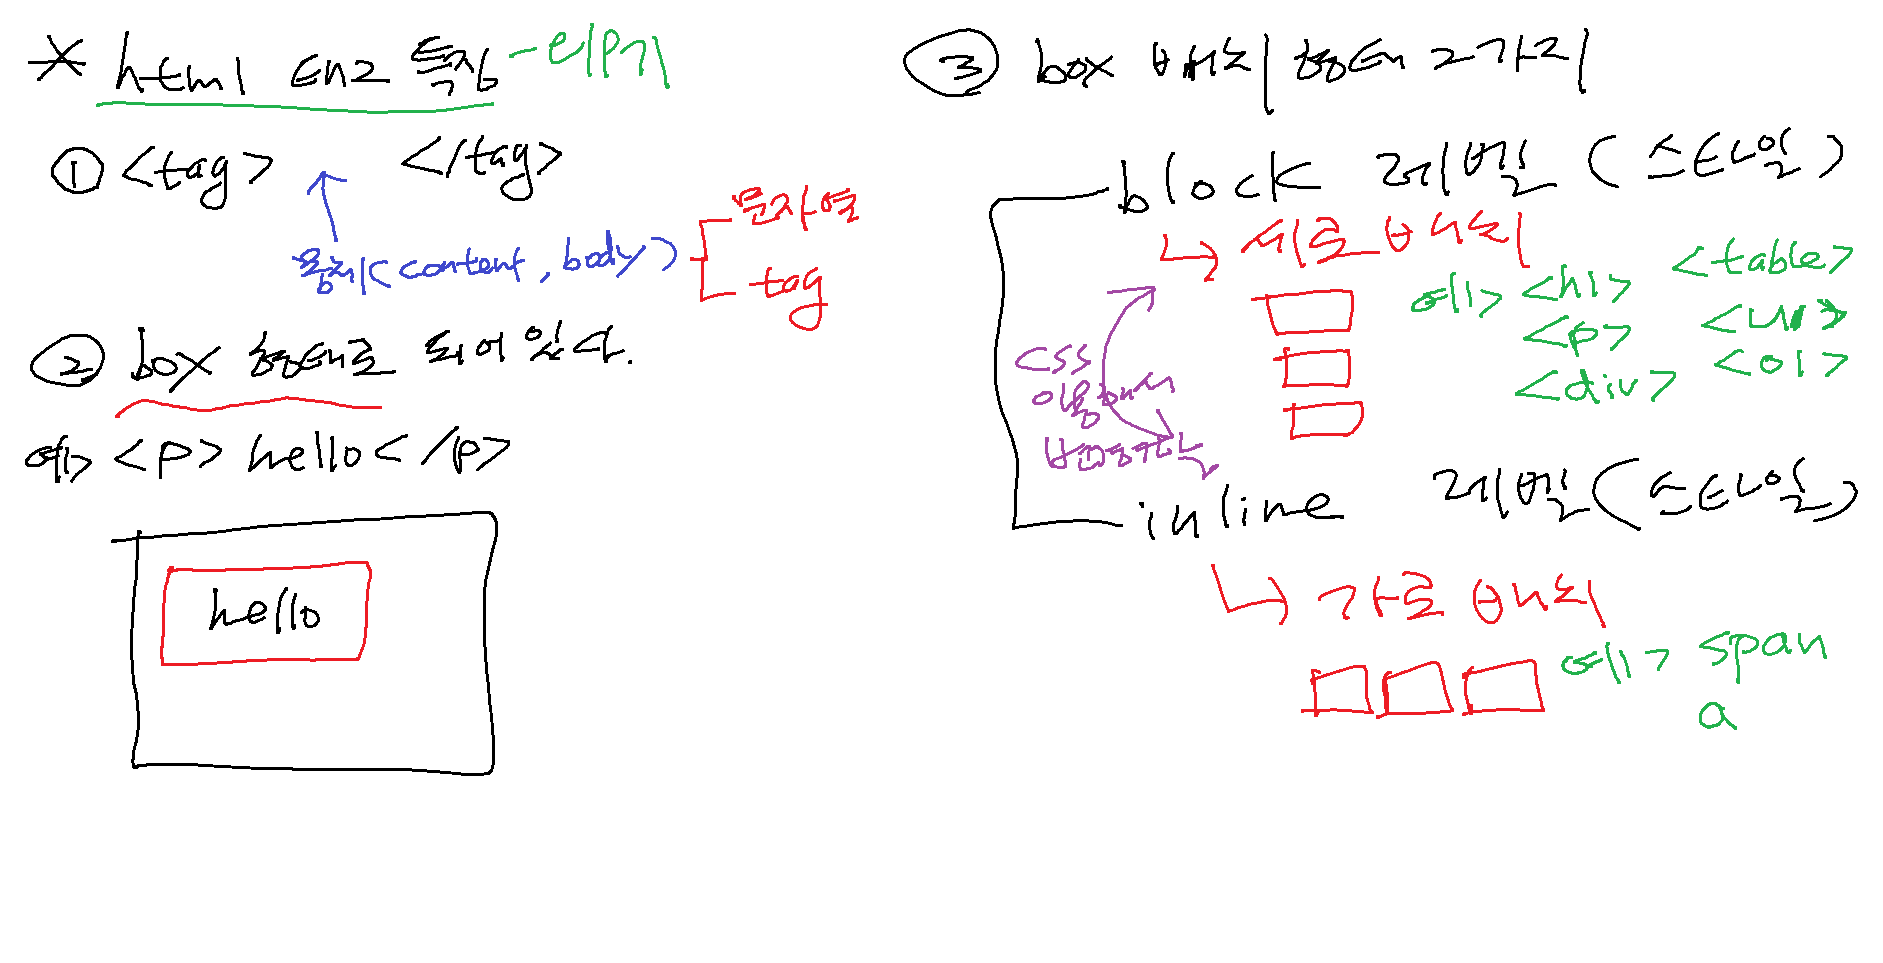 * html 태그 특징 - 티p기
① <tag> </tag>
몸체(content, body)
문자열
tag
② box 형태로 되어 있다.
예> <p> hello </p>
hello
③ box 배치 형태 2가지
block 레벨 (스타일)
→ 세로 배치
예> <h1> <table>
<p> <ul>
<div> <ol>
css
이용해서
변경가능
inline 레벨 (스타일)
→ 가로 배치
예> span
a